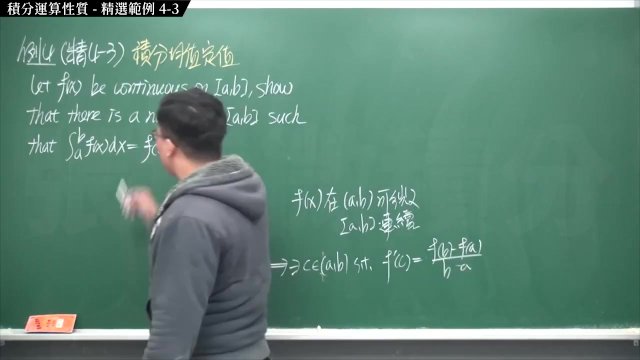 積分運算性質 - 精選範例 4-3
例4 (精4-3) 積分均值定理
Let f(x) be continuous on [a,b], show
that there is a n [a,b] such
that ∫_a^b f(x)dx = f(
f(x) 在 (a,b) 可微
[a,b] 連續
⇒ ∃ c∈(a,b) s.t. f'(c) = \frac{f(b)-f(a)}{b-a}